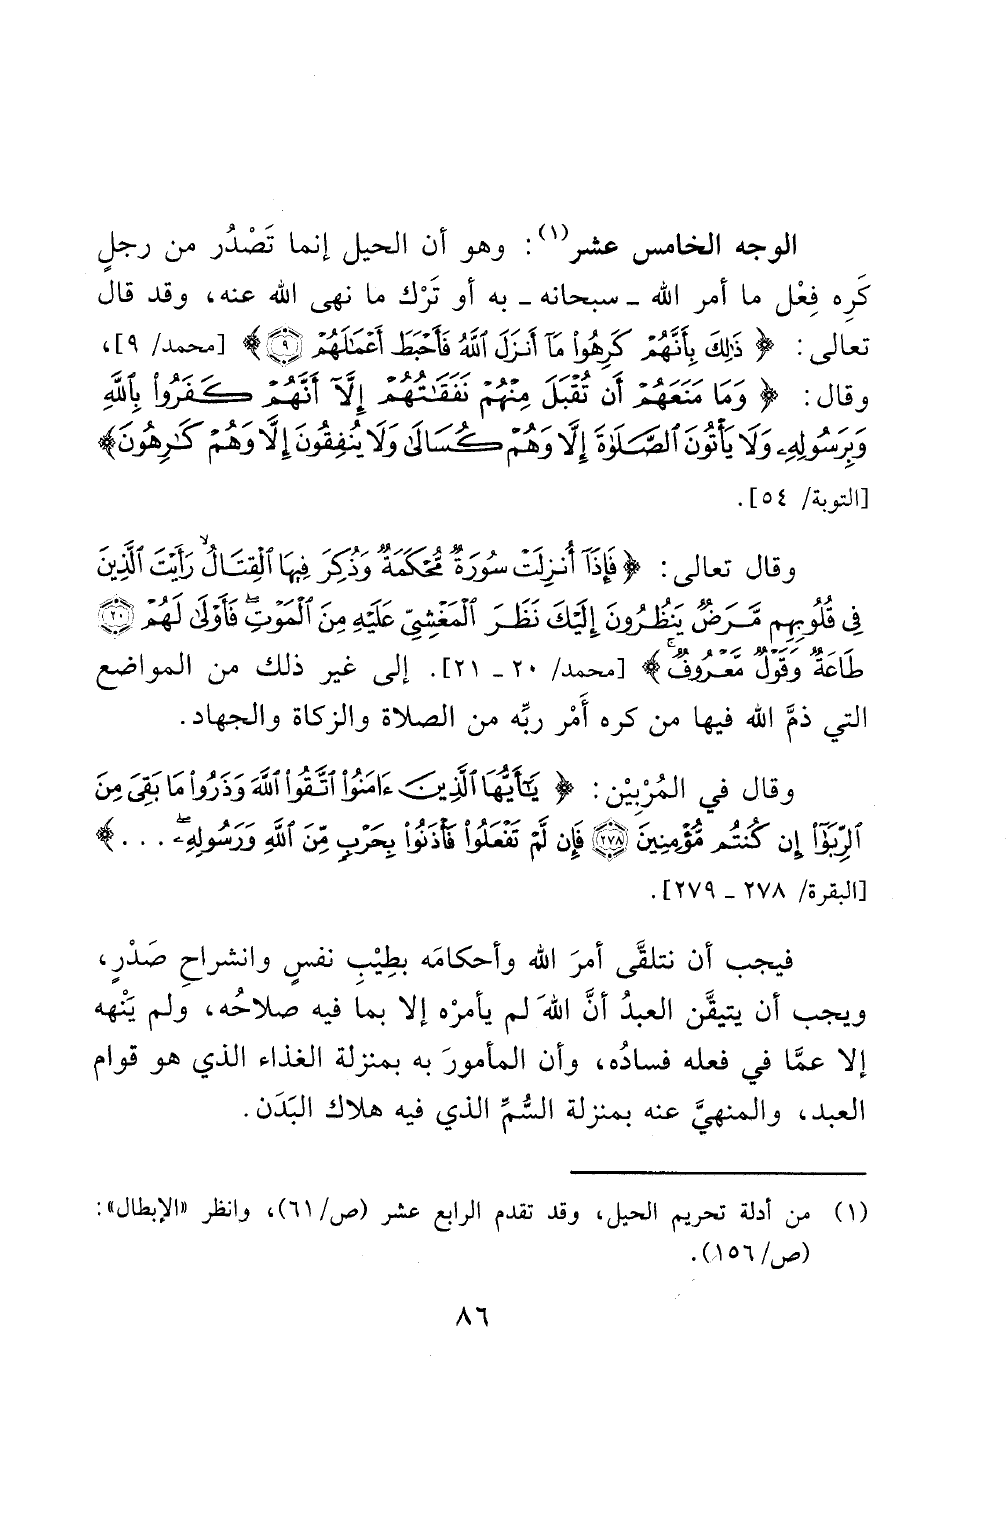 الوجه الخامس عشر(١): وهو أن الحيل إنما تَصْدُر من رجلٍ
كَرِه فِعْل ما أمر الله ـ سبحانه ـ به أو تَرْك ما نهى الله عنه، وقد قال
تعالى: ﴿ ذَٰلِكَ بِأَنَّهُمْ كَرِهُوا۟ مَآ أَنزَلَ ٱللَّهُ فَأَحْبَطَ أَعْمَٰلَهُمْ ۝٩ ﴾ [محمد/ ٩]،
وقال: ﴿ وَمَا مَنَعَهُمْ أَن تُقْبَلَ مِنْهُمْ نَفَقَٰتُهُمْ إِلَّآ أَنَّهُمْ كَفَرُوا۟ بِٱللَّهِ
وَبِرَسُولِهِۦ وَلَا يَأْتُونَ ٱلصَّلَوٰةَ إِلَّا وَهُمْ كُسَالَىٰ وَلَا يُنفِقُونَ إِلَّا وَهُمْ كَٰرِهُونَ﴾
[التوبة/ ٥٤].
وقال تعالى: ﴿ فَإِذَآ أُنزِلَتْ سُورَةٌ مُّحْكَمَةٌ وَذُكِرَ فِيهَا ٱلْقِتَالُ ۙ رَأَيْتَ ٱلَّذِينَ
فِى قُلُوبِهِم مَّرَضٌ يَنظُرُونَ إِلَيْكَ نَظَرَ ٱلْمَغْشِىِّ عَلَيْهِ مِنَ ٱلْمَوْتِ ۖ فَأَوْلَىٰ لَهُمْ ۝٢٠
طَاعَةٌ وَقَوْلٌ مَّعْرُوفٌ ۚ ﴾ [محمد/ ٢٠ ـ ٢١]. إلى غير ذلك من المواضع
التي ذمَّ الله فيها من كره أَمْر ربِّه من الصلاة والزكاة والجهاد.
وقال في المُرْبِيْن: ﴿ يَٰٓأَيُّهَا ٱلَّذِينَ ءَامَنُوا۟ ٱتَّقُوا۟ ٱللَّهَ وَذَرُوا۟ مَا بَقِىَ مِنَ
ٱلرِّبَوٰٓا۟ إِن كُنتُم مُّؤْمِنِينَ ۝٢٧٨ فَإِن لَّمْ تَفْعَلُوا۟ فَأْذَنُوا۟ بِحَرْبٍ مِّنَ ٱللَّهِ وَرَسُولِهِۦ ۖ . . . ﴾
[البقرة/ ٢٧٨ ـ ٢٧٩].
فيجب أن نتلقَّى أمرَ الله وأحكامَه بطِيْبِ نفسٍ وانشراحِ صَدْرٍ،
ويجب أن يتيقَّن العبدُ أنَّ اللهَ لم يأمرْه إلا بما فيه صلاحُه، ولم يَنْهه
إلا عمَّا في فعله فسادُه، وأن المأمورَ به بمنزلة الغذاء الذي هو قوام
العبد، والمنهيَّ عنه بمنزلة السُّمِّ الذي فيه هلاك البَدَن.
(١) من أدلة تحريم الحيل، وقد تقدم الرابع عشر (ص/٦١)، وانظر «الإبطال»:
(ص/١٥٦).
٨٦